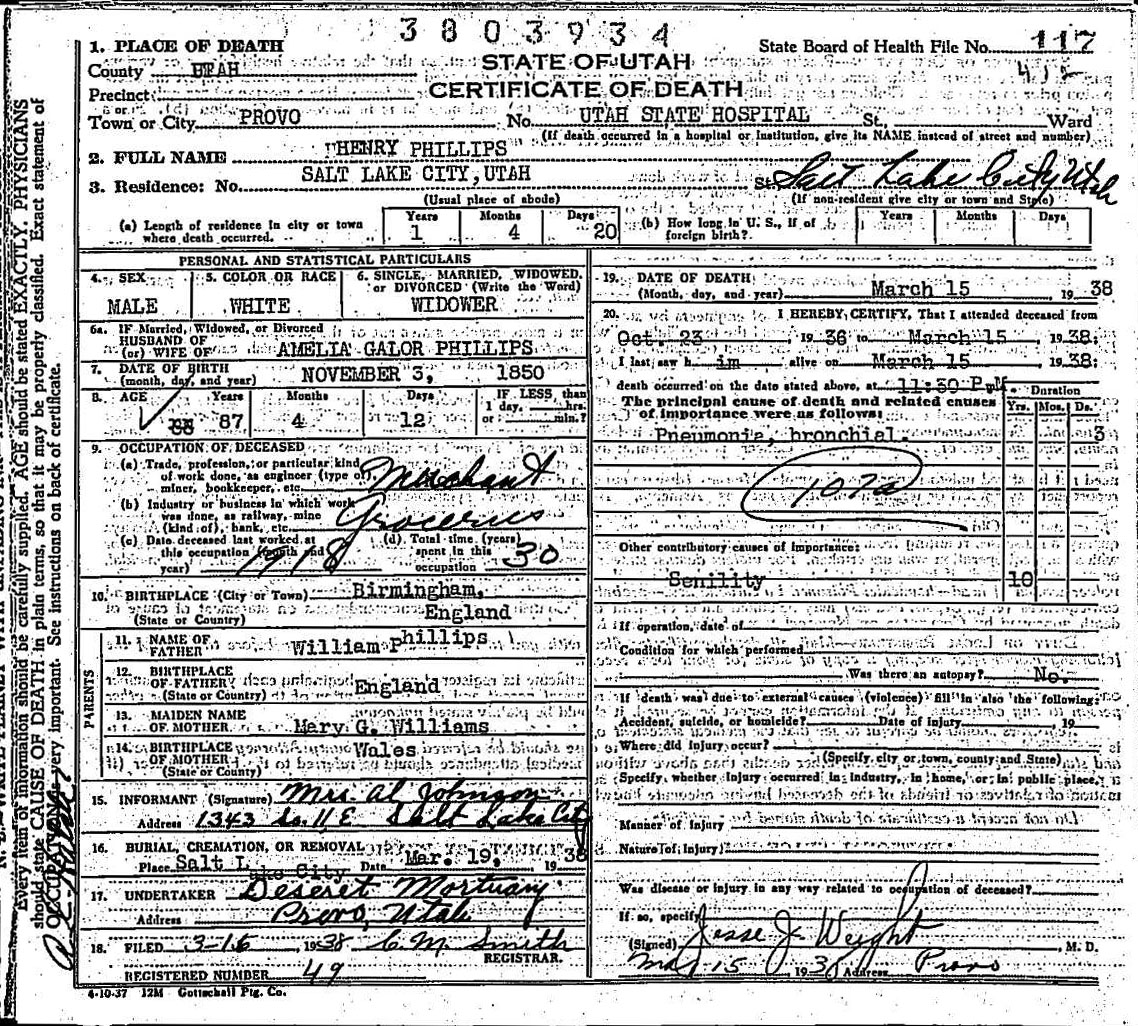 3803934
1. PLACE OF DEATH
State Board of Health File No. 117
County UTAH
STATE OF UTAH
412
Precinct
CERTIFICATE OF DEATH
or
Town or City PROVO No. UTAH STATE HOSPITAL St., Ward
(If death occurred in a hospital or institution, give its NAME instead of street and number)
2. FULL NAME "HENRY PHILLIPS"
3. Residence: No. SALT LAKE CITY, UTAH St. Salt Lake City Utah
(Usual place of abode) (If non-resident give city or town and State)
(a) Length of residence in city or town where death occurred. Years 1 Months 4 Days 20
(b) How long in U. S., if of foreign birth? Years Months Days
PERSONAL AND STATISTICAL PARTICULARS
4. SEX MALE
5. COLOR OR RACE WHITE
6. SINGLE, MARRIED, WIDOWED, or DIVORCED (Write the Word) WIDOWER
6a. IF Married, Widowed, or Divorced
HUSBAND OF
(or) WIFE OF AMELIA GALOR PHILLIPS
7. DATE OF BIRTH
(month, day, and year) NOVEMBER 3, 1850
8. AGE Years 87 Months 4 Days 12 IF LESS than 1 day, hrs. or min.?
9. OCCUPATION OF DECEASED
(a) Trade, profession, or particular kind of work done, as engineer (type of), miner, bookkeeper, etc. Merchant
(b) Industry or business in which work was done, as railway, mine (kind of), bank, etc. Groceries
(c) Date deceased last worked at this occupation (month and year) 1918
(d) Total time (years) spent in this occupation 30
10. BIRTHPLACE (City or Town) Birmingham,
(State or Country) England
PARENTS
11. NAME OF FATHER William Phillips
12. BIRTHPLACE OF FATHER England
(State or Country)
13. MAIDEN NAME OF MOTHER Mary G. Williams
14. BIRTHPLACE OF MOTHER Wales
(State or Country)
15. INFORMANT (Signature) Mrs. Al Johnson
Address 1343 So. 11 E. Salt Lake City
16. BURIAL, CREMATION, OR REMOVAL
Place Salt Lake City Date Mar. 19, 1938
17. UNDERTAKER Deseret Mortuary
Address Provo, Utah
18. FILED 3-16, 1938 C. M. Smith
REGISTRAR.
REGISTERED NUMBER 49
4-10-37 12M Gottschall Ptg. Co.
19. DATE OF DEATH
(Month, day, and year) March 15 1938
20. I HEREBY CERTIFY, That I attended deceased from
Oct. 23, 1936 to March 15, 1938;
I last saw him alive on March 15, 1938;
death occurred on the date stated above, at 11:30 P.M.
The principal cause of death and related causes of importance were as follows:
Duration
Yrs. Mos. Ds.
Pneumonia, bronchial. 3
107a
Other contributory causes of importance:
Senility 10
If operation, date of
Condition for which performed
Was there an autopsy? No.
If death was due to external causes (violence) fill in also the following:
Accident, suicide, or homicide? Date of injury 19
Where did injury occur?
(Specify city or town, county and State)
Specify whether injury occurred in industry, in home, or in public place,
Manner of Injury
Nature of Injury
Was disease or injury in any way related to occupation of deceased?
If so, specify
(Signed) Jesse J. Weight, M. D.
Mar 15 1938 Address Provo
Every item of information should be carefully supplied. AGE should be stated EXACTLY. PHYSICIANS
should state CAUSE OF DEATH in plain terms, so that it may be properly classified. Exact statement of
OCCUPATION is very important. See instructions on back of certificate.